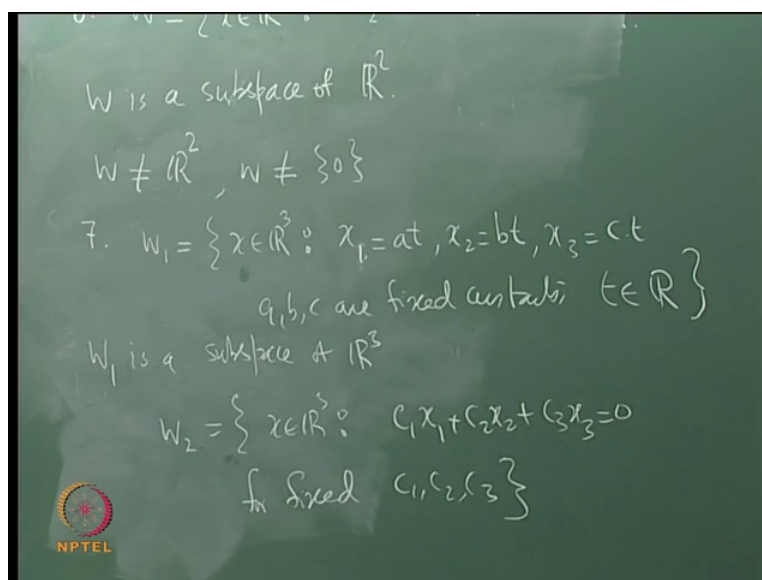 6. W = {x∈ℝ : 2
W is a subspace of ℝ².
W ≠ ℝ², W ≠ {0}
7. W₁ = {x∈ℝ³: x₁=at, x₂=bt, x₃=ct
a,b,c are fixed constants; t∈ℝ}
W₁ is a subspace of ℝ³
W₂ = { x∈ℝ³: c₁x₁+c₂x₂+c₃x₃=0
for fixed c₁,c₂,c₃}
NPTEL